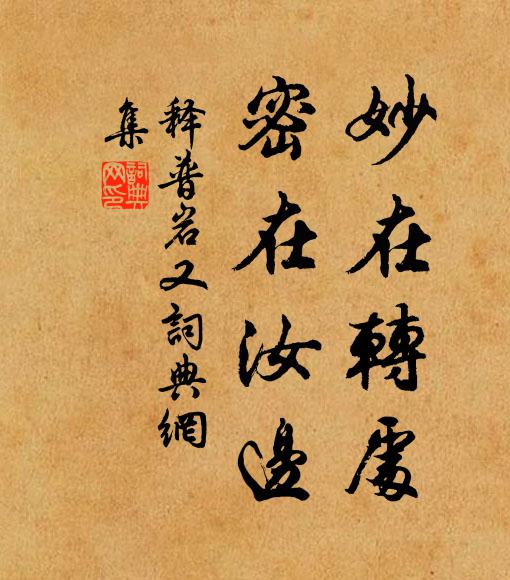 妙在轉處
密在汝邊
释普岩又詞典網
集
詞典网印